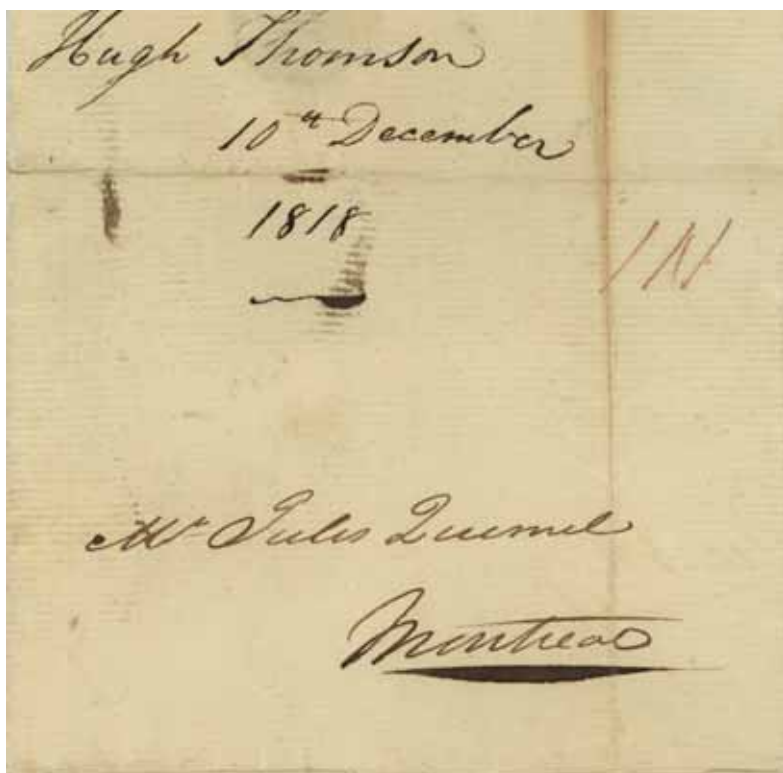 Hugh Thomson
10th December
1818
Mr Jules Quesnel
Montreal